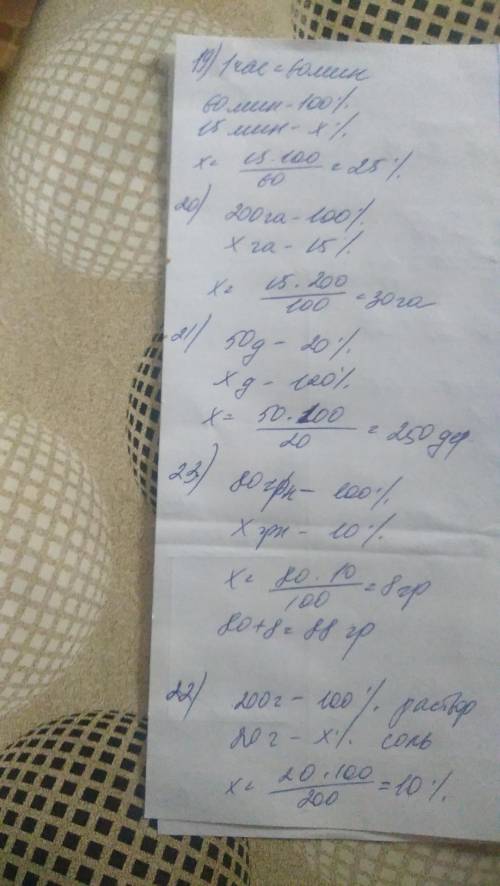 19) 1 час = 60 мин
60 мин - 100%
15 мин - х%
х = 15 · 100 / 60 = 25%
20) 200 га - 100%
х га - 15%
х = 15 · 200 / 100 = 30 га
21) 50 д - 20%
х д - 100%
х = 50 · 100 / 20 = 250 дер
23) 80 грн - 100%
х грн - 10%
х = 80 · 10 / 100 = 8 гр
80 + 8 = 88 гр
22) 200 г - 100% раствор
20 г - х% соль
х = 20 · 100 / 200 = 10%